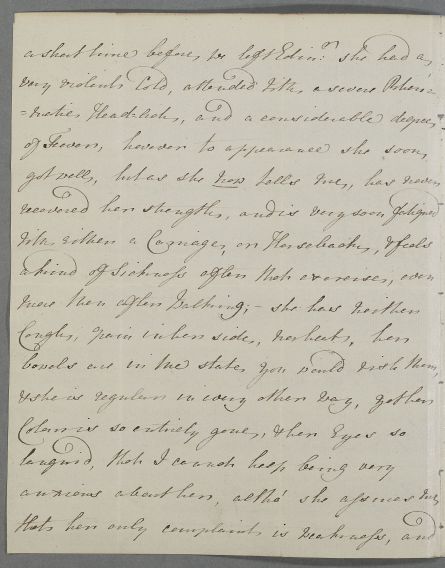 a short time before we left Edinr. she had a
very violent Cold, attended with a severe Rheu=
=matic Head-ach, and a considerable degree
of Fever, however to appearance she soon
got well, but as she now tells me, has never
recovered her strength, and is very soon fatigued
with either a Carriage, or Horseback, & feels
a kind of Sickness after that exercise, even
more than after Walking; - she has neither
Cough, pain in her side, nor heat, her
bowels are in the state you would wish them,
& she is regular in every other way, yet her
Colour is so entirely gone, & her Eyes so
languid, that I cannot keep being very
anxious about her, altho' she assures me
that her only complaint is weakness, and